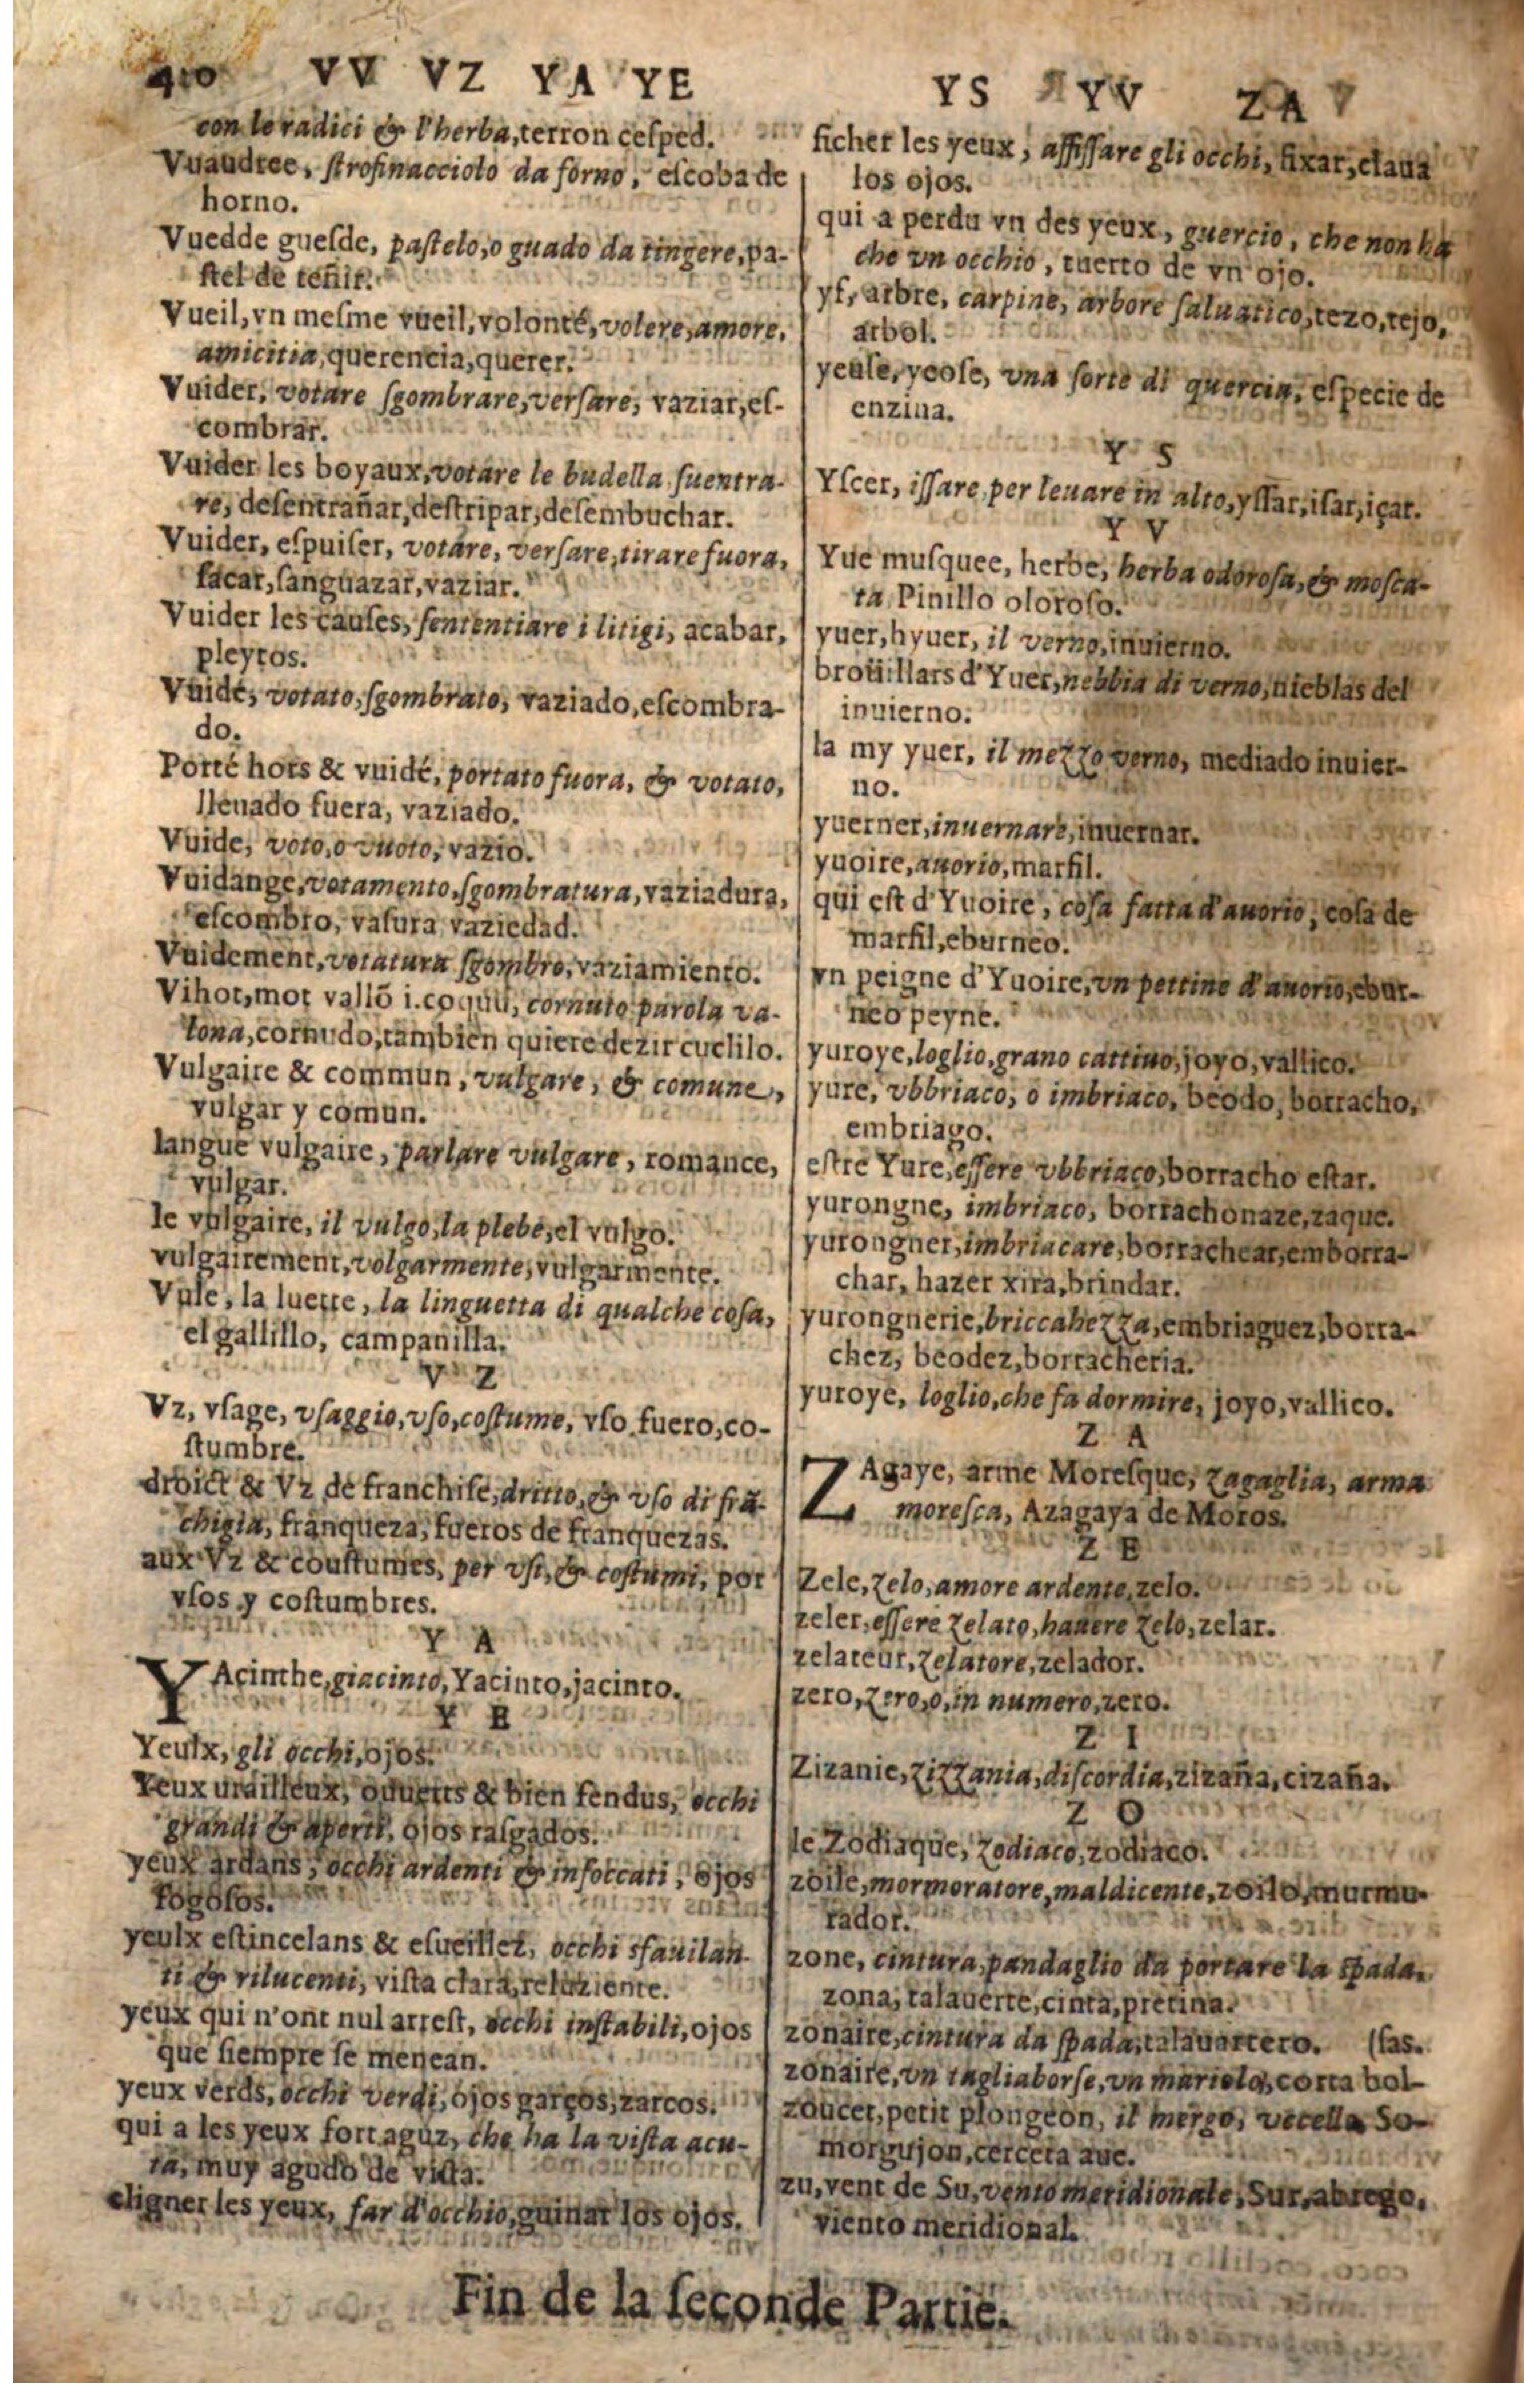 410 VV VZ YA YE
con le radici & l'herba, terron ceſped.
Vuaudree, ſtrofinacciolo da forno, eſcoba de
horno.
Vuedde gueſde, paſtelo, o guado da tingere, pa-
ſtel de teñir.
Vueil, vn meſme vueil, volonté, volere, amore,
amicitia, querencia, querer.
Vuider, votare ſgombrare, verſare, vaziar, eſ-
combrar.
Vuider les boyaux, votare le budella ſuentra-
re, deſentrañar, deſtripar, deſembuchar.
Vuider, eſpuiſer, votare, verſare, tirare fuora,
ſacar, ſanguazar, vaziar.
Vuider les cauſes, ſententiare i litigi, acabar,
pleytos.
Vuidé, votato, ſgombrato, vaziado, eſcombra-
do.
Porté hors & vuidé, portato fuora, & votato,
lleuado fuera, vaziado.
Vuide, voto, o vuoto, vazio.
Vuidange, votamento, ſgombratura, vaziadura,
eſcombro, vaſura vaziedad.
Vuidement, votatura ſgombro, vaziamiento.
Vihot, mot vallõ i. coquu, cornuto parola va-
lona, cornudo, tambien quiere dezir cuclilo.
Vulgaire & commun, vulgare, & comune,
vulgar y comun.
langue vulgaire, parlare vulgare, romance,
vulgar.
le vulgaire, il vulgo, la plebe, el vulgo.
vulgairement, volgarmente, vulgarmente.
Vule, la luette, la linguetta di qualche coſa,
el gallillo, campanilla.
V Z
Vz, vſage, vſaggio, vſo, coſtume, vſo, fuero, co-
ſtumbre.
droict & Vz de franchiſe, dritto, & vſo di frã-
chigia, franqueza, fueros de franquezas.
aux Vz & couſtumes, per vſi, & coſtumi, por
vſos y coſtumbres.
Y A
YAcinthe, giacinto, Yacinto, jacinto.
Y E
Yeulx, gli occhi, ojos.
Yeux urailleux, ouuerts & bien fendus, occhi
grandi & aperti, ojos raſgados.
yeux ardans, occhi ardenti & infoccati, ojos
fogoſos.
yeulx eſtincelans & eſueillez, occhi sfauilan-
ti & rilucenti, viſta clara, reluziente.
yeux qui n'ont nul arreſt, occhi inſtabili, ojos
que ſiempre ſe menean.
yeux verds, occhi verdi, ojos garços, zarcos.
qui a les yeux fort aguz, che ha la viſta acu-
ta, muy agudo de viſta.
cligner les yeux, far d'occhio, guinar los ojos.
YS YV ZA
ficher les yeux, affiſſare gli occhi, fixar, claua
los ojos.
qui a perdu vn des yeux, guercio, che non ha
che vn occhio, tuerto de vn ojo.
yf, arbre, carpine, arbore ſaluatico, tezo, tejo,
arbol.
yeuſe, yeoſe, vna ſorte di quercia, eſpecie de
enzina.
Y S
Yſcer, iſſare, per leuare in alto, yſſar, iſar, içar.
Y V
Yue muſquee, herbe, herba odoroſa, & moſca-
ta Pinillo oloroſo.
yuer, hyuer, il verno, inuierno.
broüillars d'Yuer, nebbia di verno, nieblas del
inuierno.
la my yuer, il mezzo verno, mediado inuier-
no.
yuerner, inuernare, inuernar.
yuoire, auorio, marfil.
qui est d'Yuoire, coſa fatta d'auorio, coſa de
marfil, eburneo.
vn peigne d'Yuoire, vn pettine d'auorio, ebur-
neo peyne.
yuroye, loglio, grano cattiuo, joyo, vallico.
yure, vbbriaco, o imbriaco, beodo, borracho,
embriago.
eſtre Yure, eſſere vbbriaco, borracho eſtar.
yurongne, imbriaco, borrachonaze, zaque.
yurongner, imbriacare, borrachear, emborra-
char, hazer xira, brindar.
yurongnerie, briccahezza, embriaguez, borra-
chez, beodez, borracheria.
yuroye, loglio, che fa dormire, joyo, vallico.
Z A
ZAgaye, arme Moreſque, zagaglia, arma
moreſca, Azagaya de Moros.
Z E
Zele, zelo, amore ardente, zelo.
zeler, eſſere zelato, hauere zelo, zelar.
zelateur, zelatore, zelador.
zero, zero, o, in numero, zero.
Z I
Zizanie, zizzania, diſcordia, zizaña, cizaña.
Z O
le Zodiaque, zodiaco, zodiaco.
zoile, mormoratore, maldicente, zoilo, murmu-
rador.
zone, cintura, pandaglio da portare la ſpada,
zona, talauerte, cinta, pretina.
zonaire, cintura da ſpada, talauartero. (ſas.
zonaire, vn tagliaborſe, vn mariolo, corta bol-
zoucet, petit plongeon, il mergo, vccella So-
morgujon, cerceta aue.
zu, vent de Su, vento meridionale, Sur, abrego,
viento meridional.
Fin de la ſeconde Partie.